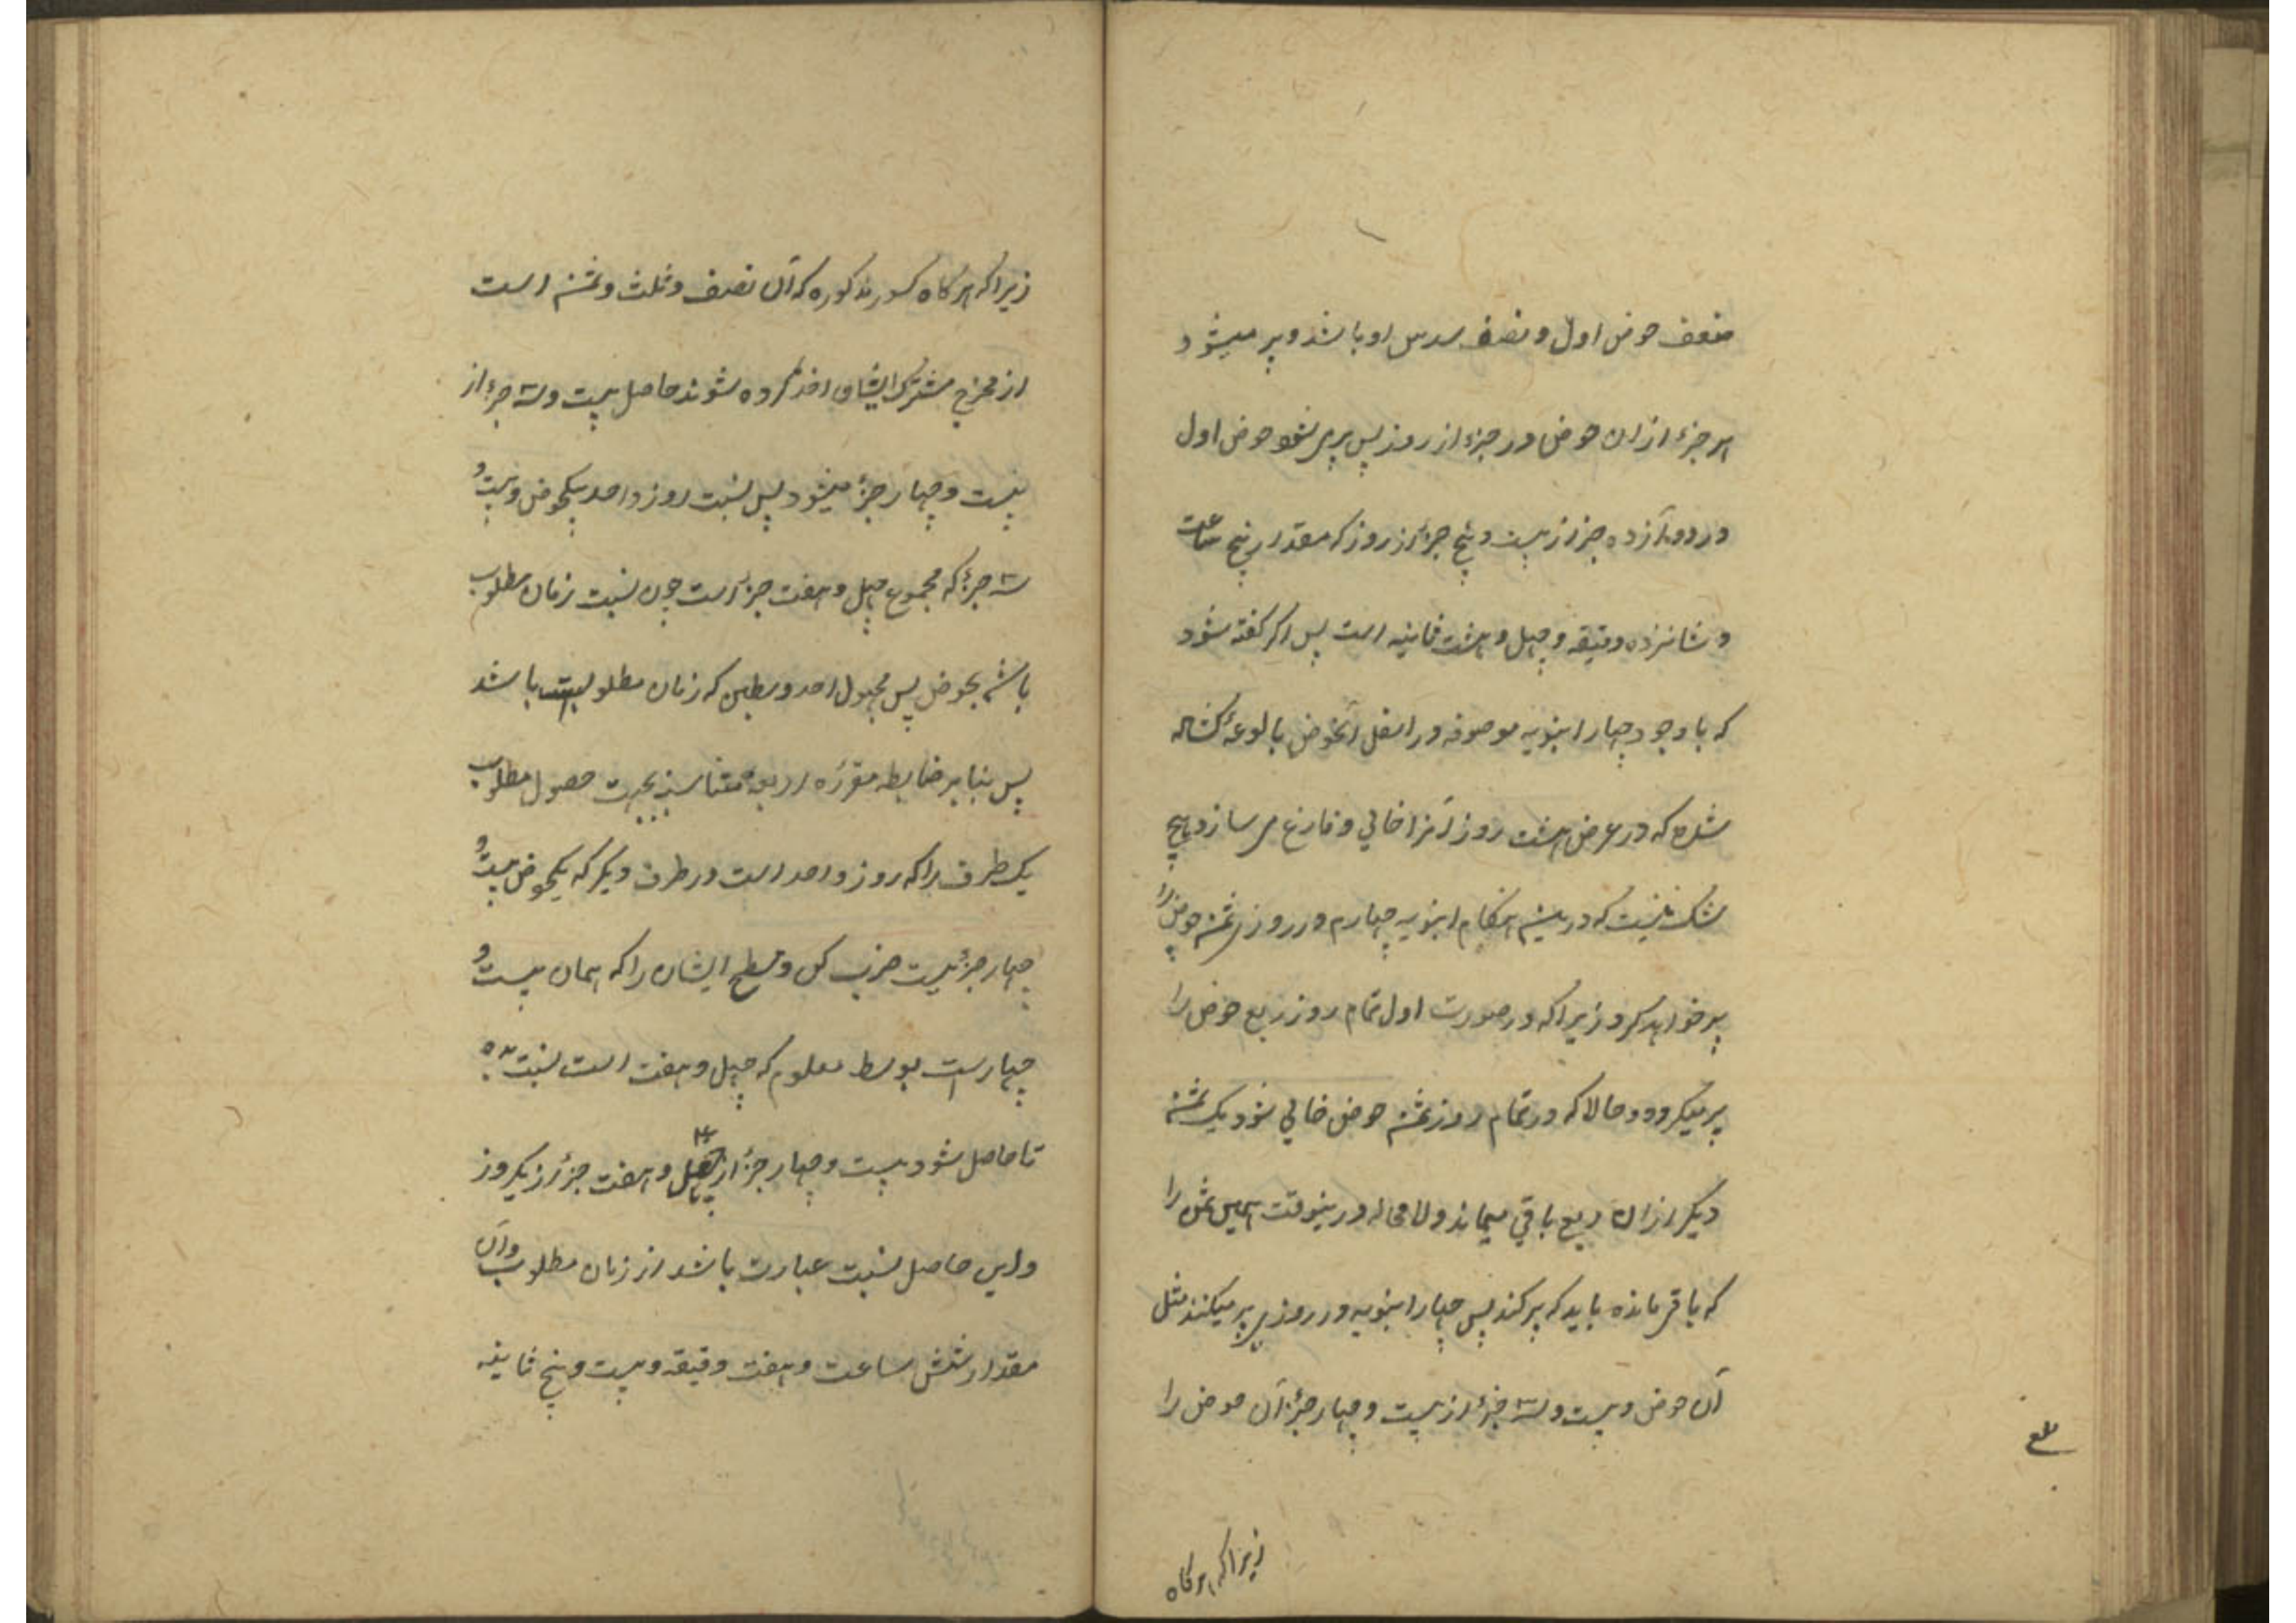 ضعف حوض اول و نصف سدس او باشد و پر میشود
هر جزء ازان حوض در جزء از روز پس پر می شود حوض اول
در دوازده جزء از بیست و پنج جزء از روز که مقدار پنج ساعت
و شانزده دقیقه و چهل و هشت ثانیه است پس اگر گفته شود
که با وجود چهار انبوبه موصوفه در اسفل آنحوض بالوعهٔ کشاده
شده که در عرض هشت روز آنرا خالی و فارغ می سازد هیچ
شک نیست که درین هنگام انبوبه چهارم در روز ثمن حوض را
پر خواهد کرد زیرا که در صورت اول تمام روز ربع حوض را
پر میکرد و حالا که در تمام روز ثمن حوض خالی شود یک ثمن
دیگر ازان ربع باقی میماند و لا محاله درینوقت همین ثمن را
که باقی مانده باید که پر کند پس چهار انبوبه در روزی پر میکنند مثل
آن حوض و بیست و سه جزء از بیست و چهار جزء آن حوض را
زیرا که هرگاه
زیرا که هرگاه کسور مذکوره که آن نصف و ثلث و ثمن است
از مخرج مشترک ایشان اخذ کرده شوند حاصل بیست و سه جزء از
بیست و چهار جزء میشود پس نسبت روز واحد بیکحوض و بیست و
سه جزء که مجموع چهل و هفت جزء است چون نسبت زمان مطلوب
باشد بحوض پس مجهول احد وسطین که زمان مطلوبست باشد
پس بنا بر ضابطه مقرره اربعه متناسبه بجهت حصول مطلوب
یک طرف را که روز واحد است در طرف دیگر که یکحوض بیست و
چهار جزء است ضرب کن و مسطح ایشان را که همان بیست و
چهارست بوسط معلوم که چهل و هفت است نسبت ده
تا حاصل شود بیست و چهار جزء از چهل و هفت جزء از یکروز
و این حاصل نسبت عبارت باشد از زمان مطلوب و آن
مقدار شش ساعت و هفت دقیقه و بیست و پنج ثانیه